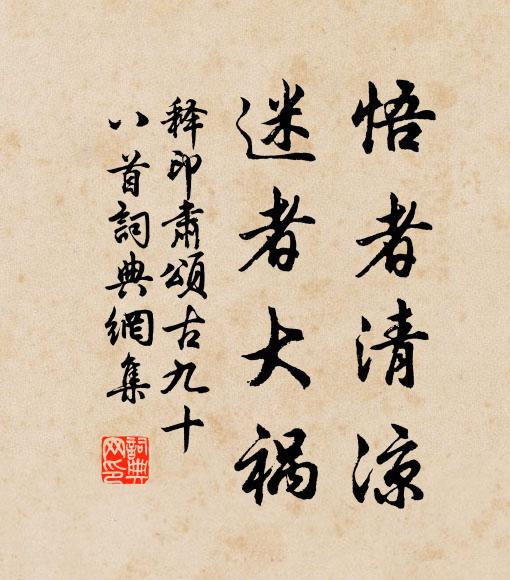 悟者清涼
迷者大禍
释印肅頌古九十
八首詞典網集
詞典
网印